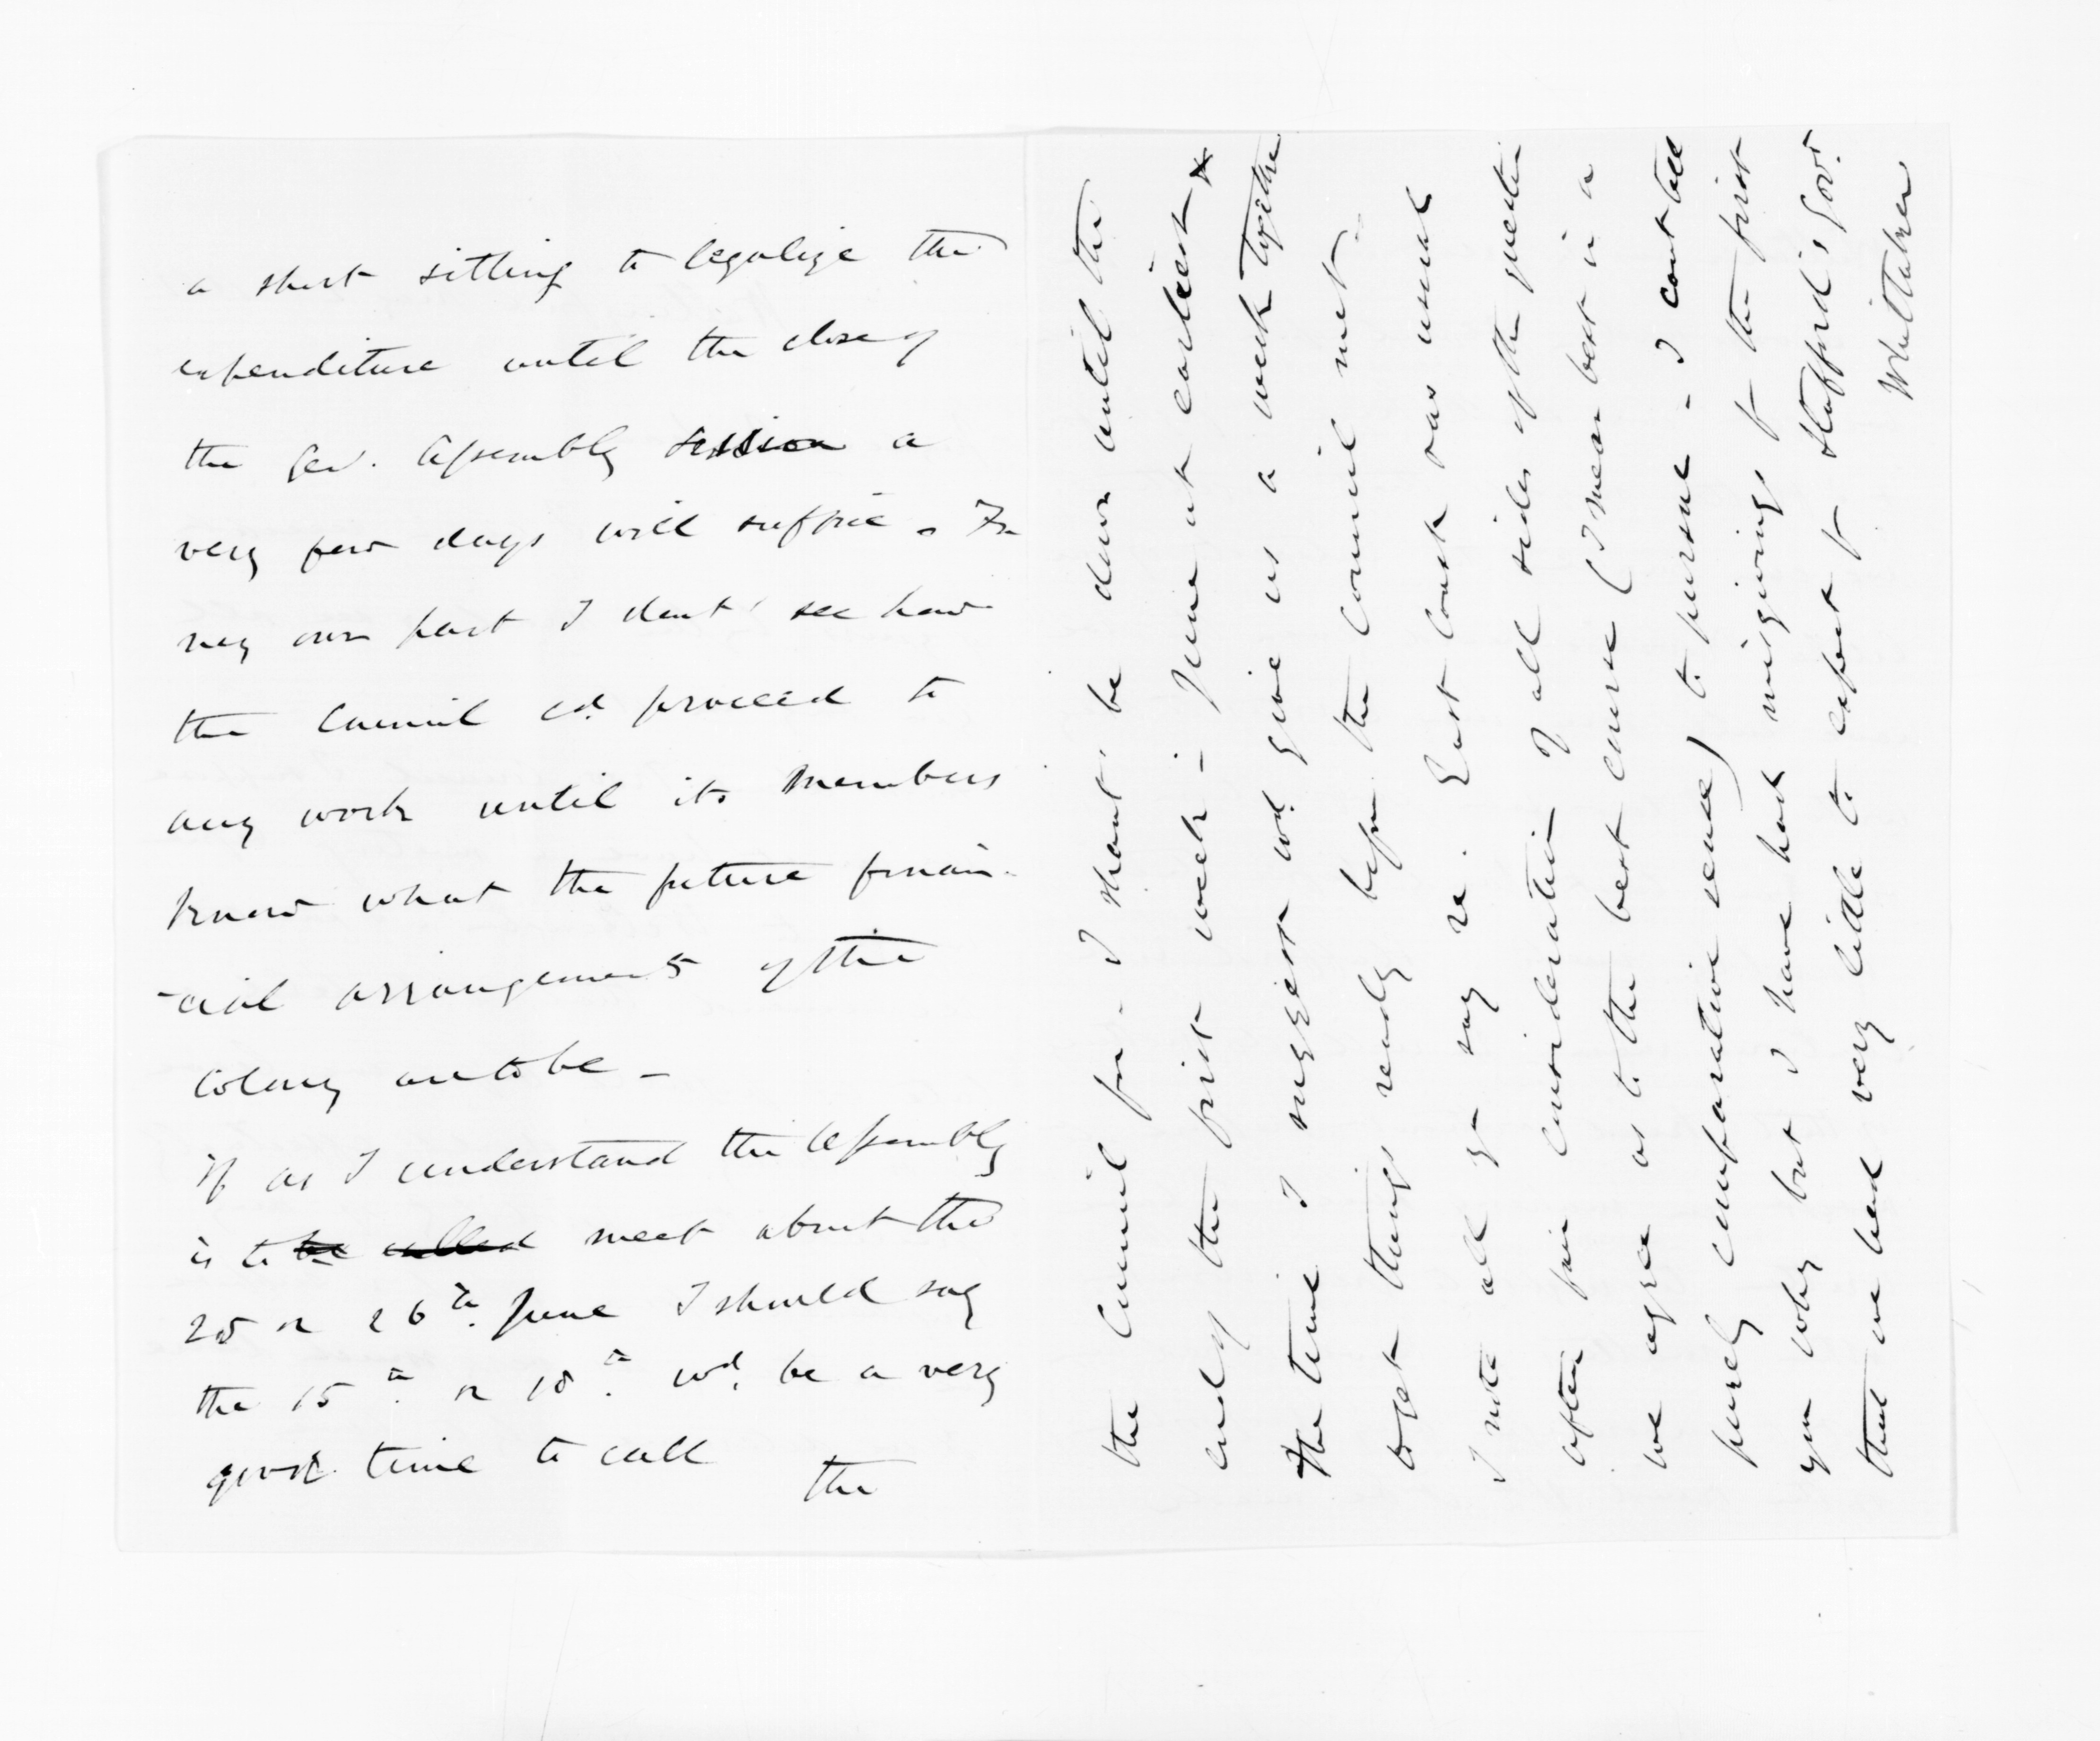 a short sitting to legalize the
expenditure until the close of
the Gen. Assembly session a
very few days will suffice. For
my own part I dont see how
the Council cd. proceed to
any work until its members
know what the future finan-
-cial arrangements of the
Colony are to be -
If as I understand the Assembly
is to be called meet about the
25 or 26th. June I should say
the 15th. or 18th. wd. be a very
good time to call the
the Council for. I shant be down until the
end of the first week in June at earliest x
the time I suggest wd. give us a week together
to get things ready before the Council met.
I note all you say re. East Coast
after fair consideration of all sides of the question
we agree as to the best course (I mean best in a
purely comparative sense) to pursue - I cant tell
you why but I have had misgivings from the first
that we had very little to expect from Stafford's Govt.
Whittaker